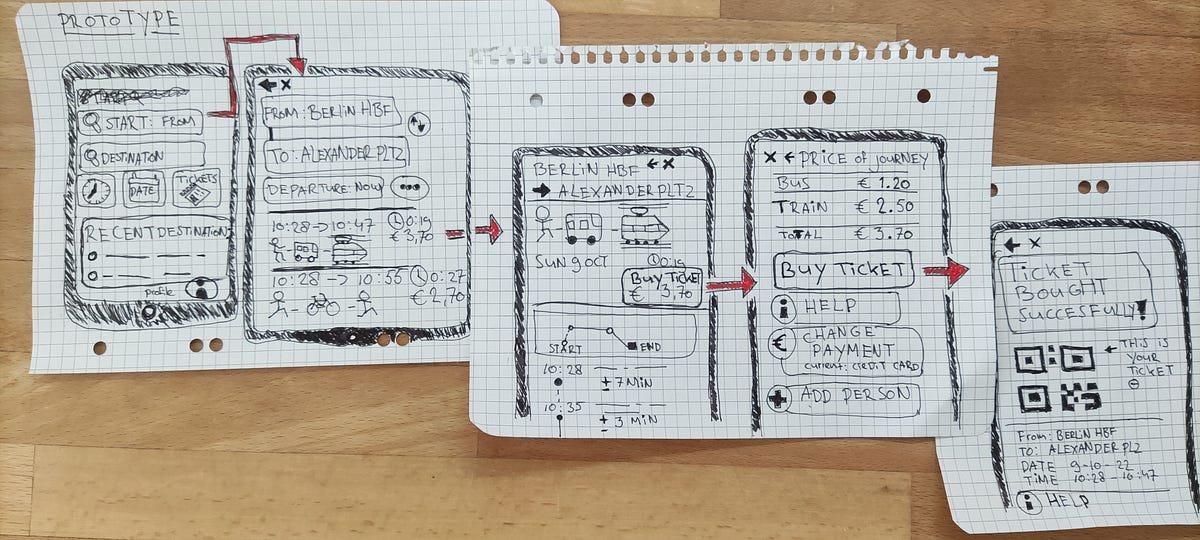 PROTOTYPE
START: FROM
DESTINATION
DATE
TICKETS
RECENT DESTINATION
Profile
FROM: BERLIN HBF
TO: ALEXANDERPLTZ
DEPARTURE: NOW
10:28 -> 10:47 0:19
€ 3,70
10:28 -> 10:55 0:27
€ 2,70
BERLIN HBF
ALEXANDERPLTZ
SUN 9 OCT
0:19
BUY TICKET
€ 3,70
START
END
10:28
± 7 MIN
10:35
± 3 MIN
PRICE of JOURNEY
BUS € 1.20
TRAIN € 2.50
TOTAL € 3.70
BUY TICKET
HELP
CHANGE
PAYMENT
current: CREDIT CARD
ADD PERSON
TICKET
BOUGHT
SUCCESFULLY!
THIS IS
YOUR
TICKET
From: BERLIN HBF
TO: ALEXANDERPLZ
DATE 9-10-22
TIME 10:28-10:47
HELP